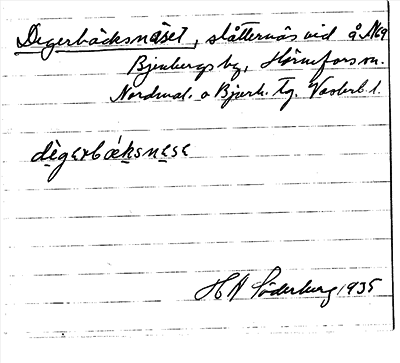 Degerbäcksnäset, slåtternäs vid å N69
Bjenbergs by, Hörnefors sn.
Nordmal. o Bjurh. Tg. Västerb. l.
dègərbǽksnesə
H N Söderberg 1935